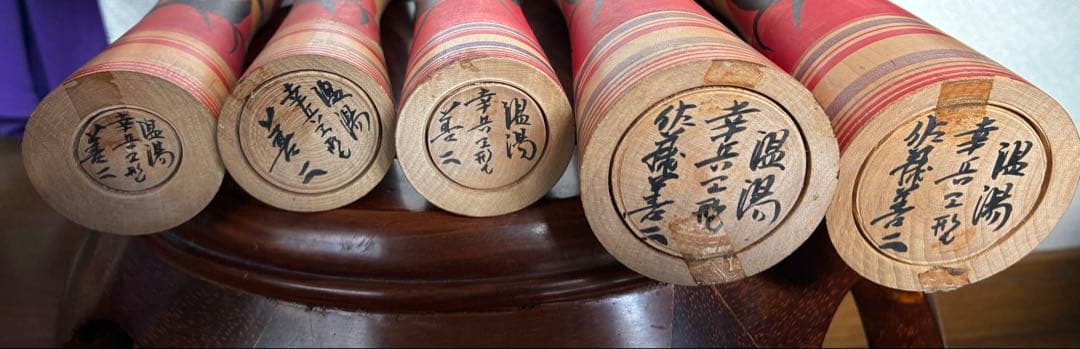 温湯
幸兵エ形
善二
温湯
幸兵エ形
善二
温湯
幸兵エ形
善二
温湯
幸兵エ形
佐藤善二
温湯
幸兵エ形
佐藤善二